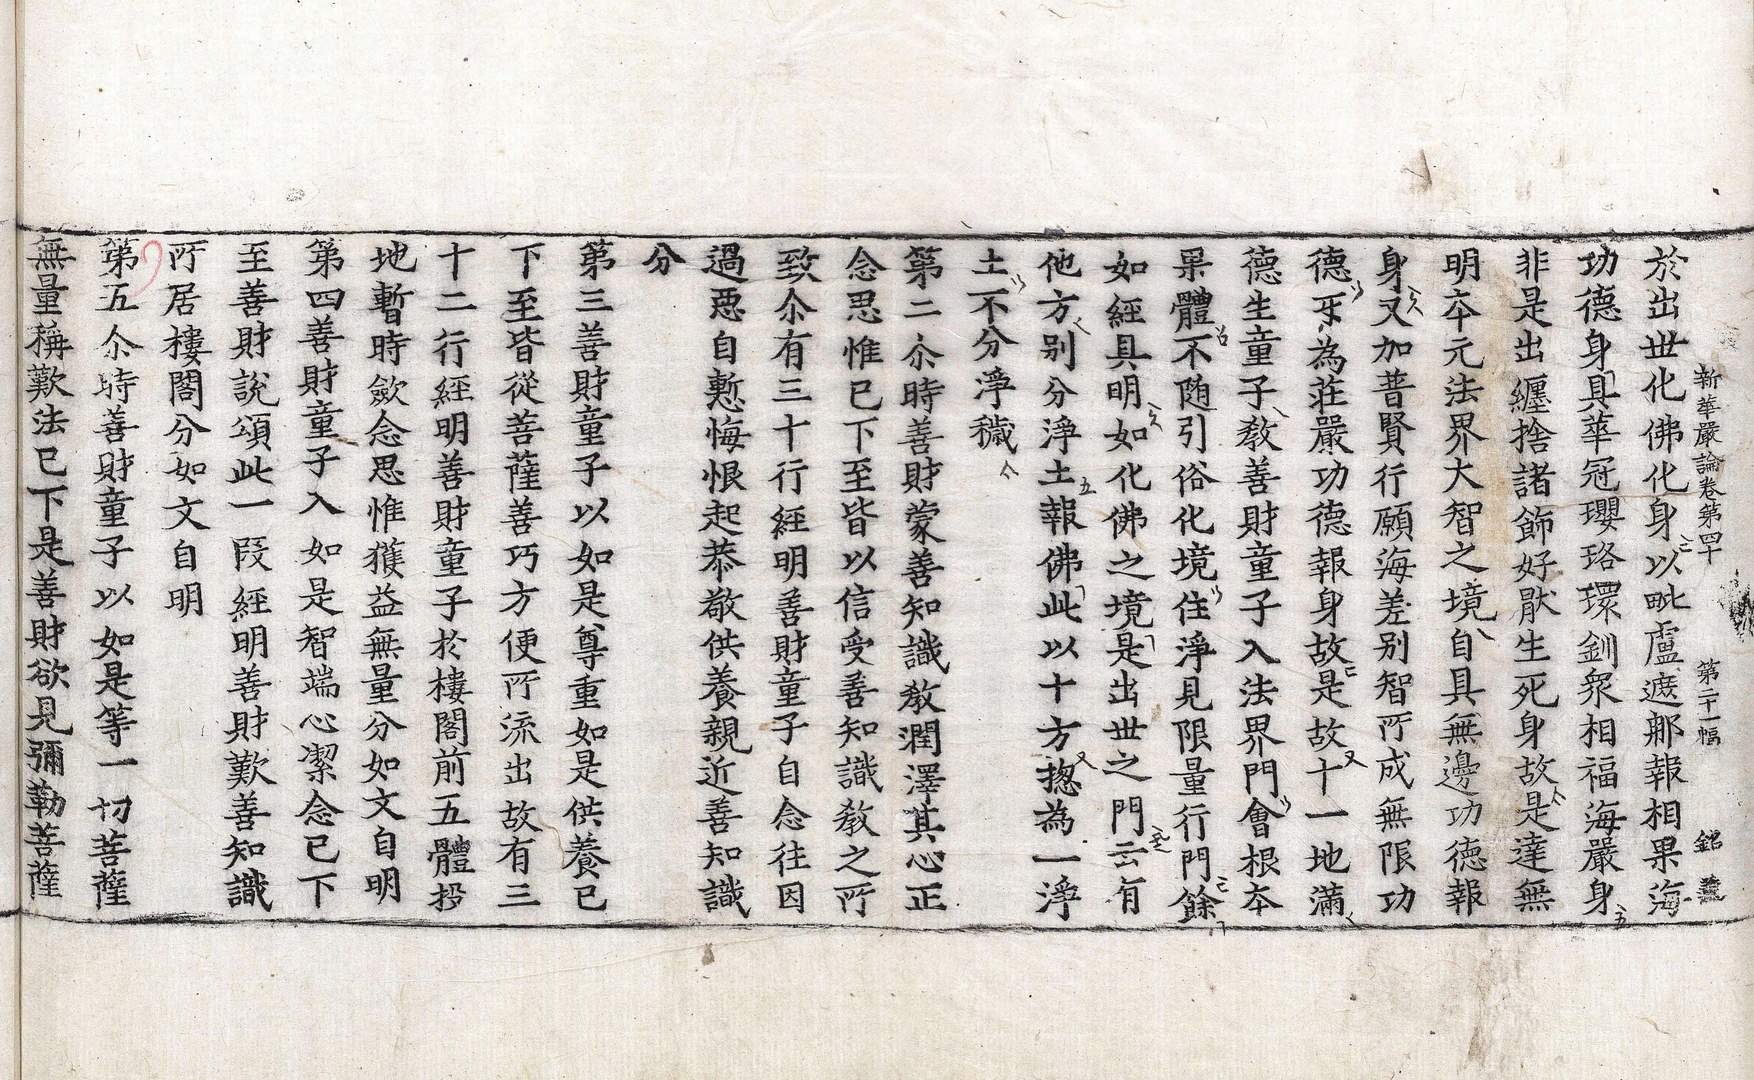 新華嚴論卷第四十 第二十一幅 銘
於出世化佛化身以毗盧遮那報相果海
功德身具華冠瓔珞環釧衆相福海嚴身
非是出纏捨諸飾好猒生死身故是達無
明夲元法界大智之境自具無邊功德報
身又加普賢行願海差别智所成無限功
德牙為荘嚴功德報身故是故十一地滿
德生童子教善財童子入法界門會根夲
果體不随引俗化境住淨見限量行門餘
如經具明如化佛之境是出世之門云有
他方别分淨土報佛此以十方揔為一淨
土不分淨穢
第二尒時善財蒙善知識教潤澤其心正
念思惟已下至皆以信受善知識教之所
致尒有三十行經明善財童子自念往因
過惡自慙悔恨起恭敬供養親近善知識
分
第三善財童子以如是尊重如是供養已
下至皆從菩薩善巧方便所流出故有三
十二行經明善財童子於樓閣前五體投
地暫時歛念思惟獲益無量分如文自明
第四善財童子入如是智端心潔念已下
至善財說頌此一段經明善財歎善知識
所居樓閣分如文自明
第五尒時善財童子以如是等一切菩薩
無量稱歎法已下是善財欲見彌勒菩薩